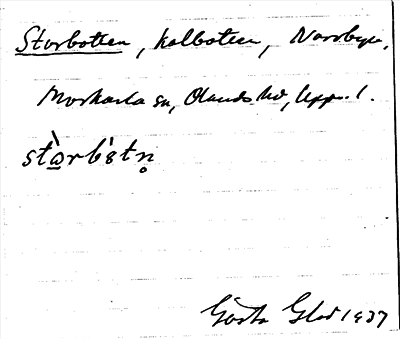 Storbotten, kolbotten, Nordbyn,
Morkarla sn, Olands hd, Upps. l.
stòrbʹstn̥
Gösta Glad 1937